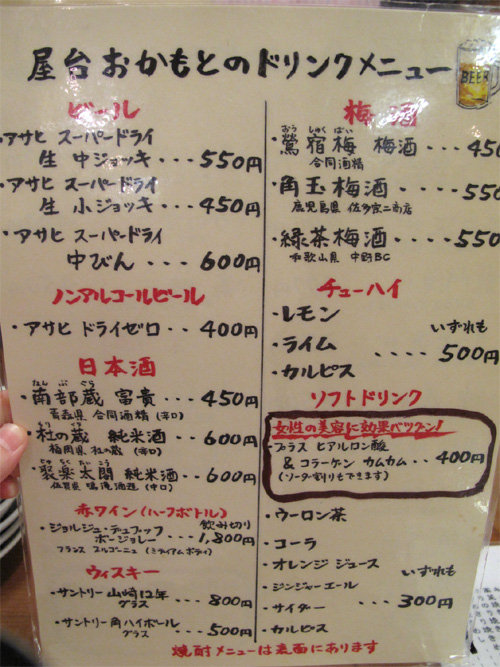 屋台おかもとのドリンクメニュー
BEER
ビール
・アサヒ スーパードライ
生 中ジョッキ ・・・ 550円
・アサヒ スーパードライ
生 小ジョッキ ・・・ 450円
・アサヒ スーパードライ
中びん ・・・ 600円
ノンアルコールビール
・アサヒ ドライゼロ ・・ 400円
日本酒
なんぶぐら
・南部蔵 富貴 ・・・ 450円
青森県 合同酒精 (辛口)
・杜の蔵 純米酒 ・・ 600円
福岡県 杜の蔵 (辛口)
じゅらくたいこう
・聚楽太閤 純米酒 ・・ 600円
佐賀県 鳴滝酒造 (中口)
赤ワイン(ハーフボトル)
・ジョルジュ・デュブッフ 飲み切り
ボージョレー ・・・ 1,800円
フランス ブルゴーニュ (ミディアムボディ)
ウィスキー
・サントリー 山崎12年
グラス ・・・ 800円
・サントリー 角ハイボール
グラス ・・・ 500円
梅酒
おうしゅくばい
・鶯宿梅 梅酒 ・・・ 450
合同酒精
・角玉梅酒 ・・・・ 550
鹿児島県 佐多宗二商店
・緑茶梅酒 ・・・・ 550
和歌山県 中野BC
チューハイ
・レモン
・ライム
・カルピス
いずれも
・・・・ 500円
ソフトドリンク
女性の美容に効果バツグン!
・プラス ヒアルロン酸
& コラーゲン カムカム ・・ 400円
(ソーダ割りもできます)
・ウーロン茶
・コーラ
・オレンジ ジュース
・ジンジャーエール
・サイダー
・カルピス
いずれも
・・・ 300円
焼酎メニューは裏面にあります